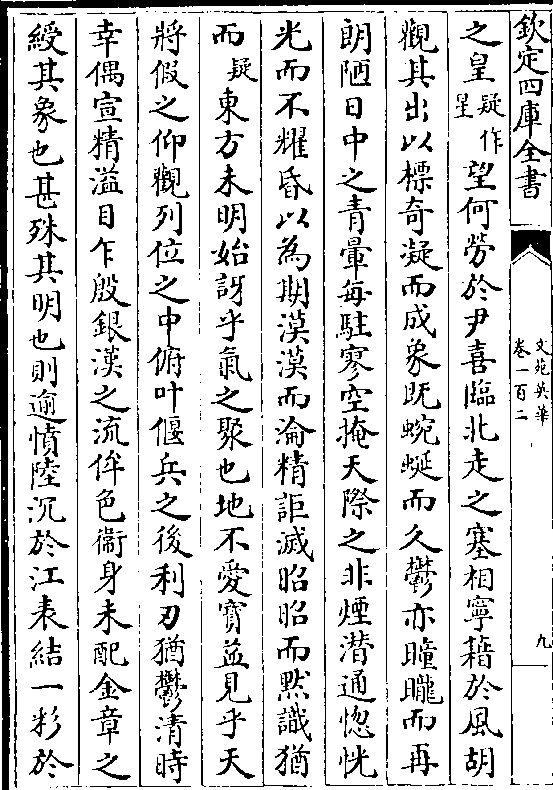 欽定四庫全書
文苑英華
卷一百二
九
之皇疑作星望何勞於尹喜臨北走之塞相寧藉於風胡
觀其出以標奇凝而成象既蜿蜒而久鬱亦曈曨而再
朗陋日中之青暈每駐寥空掩天際之非煙潛通惚恍
光而不耀昏以為期漠漠而淪精詎滅昭昭而默識猶
而疑東方未明始訝乎氣之聚也地不愛寶並見乎天
將假之仰觀列位之中俯叶偃兵之後利刃猶鬱清時
幸偶宣精溢目乍殷銀漢之流侔色衞身未配金章之
綬其象也甚殊其明也則逾憤陸沉於江表結一彩於